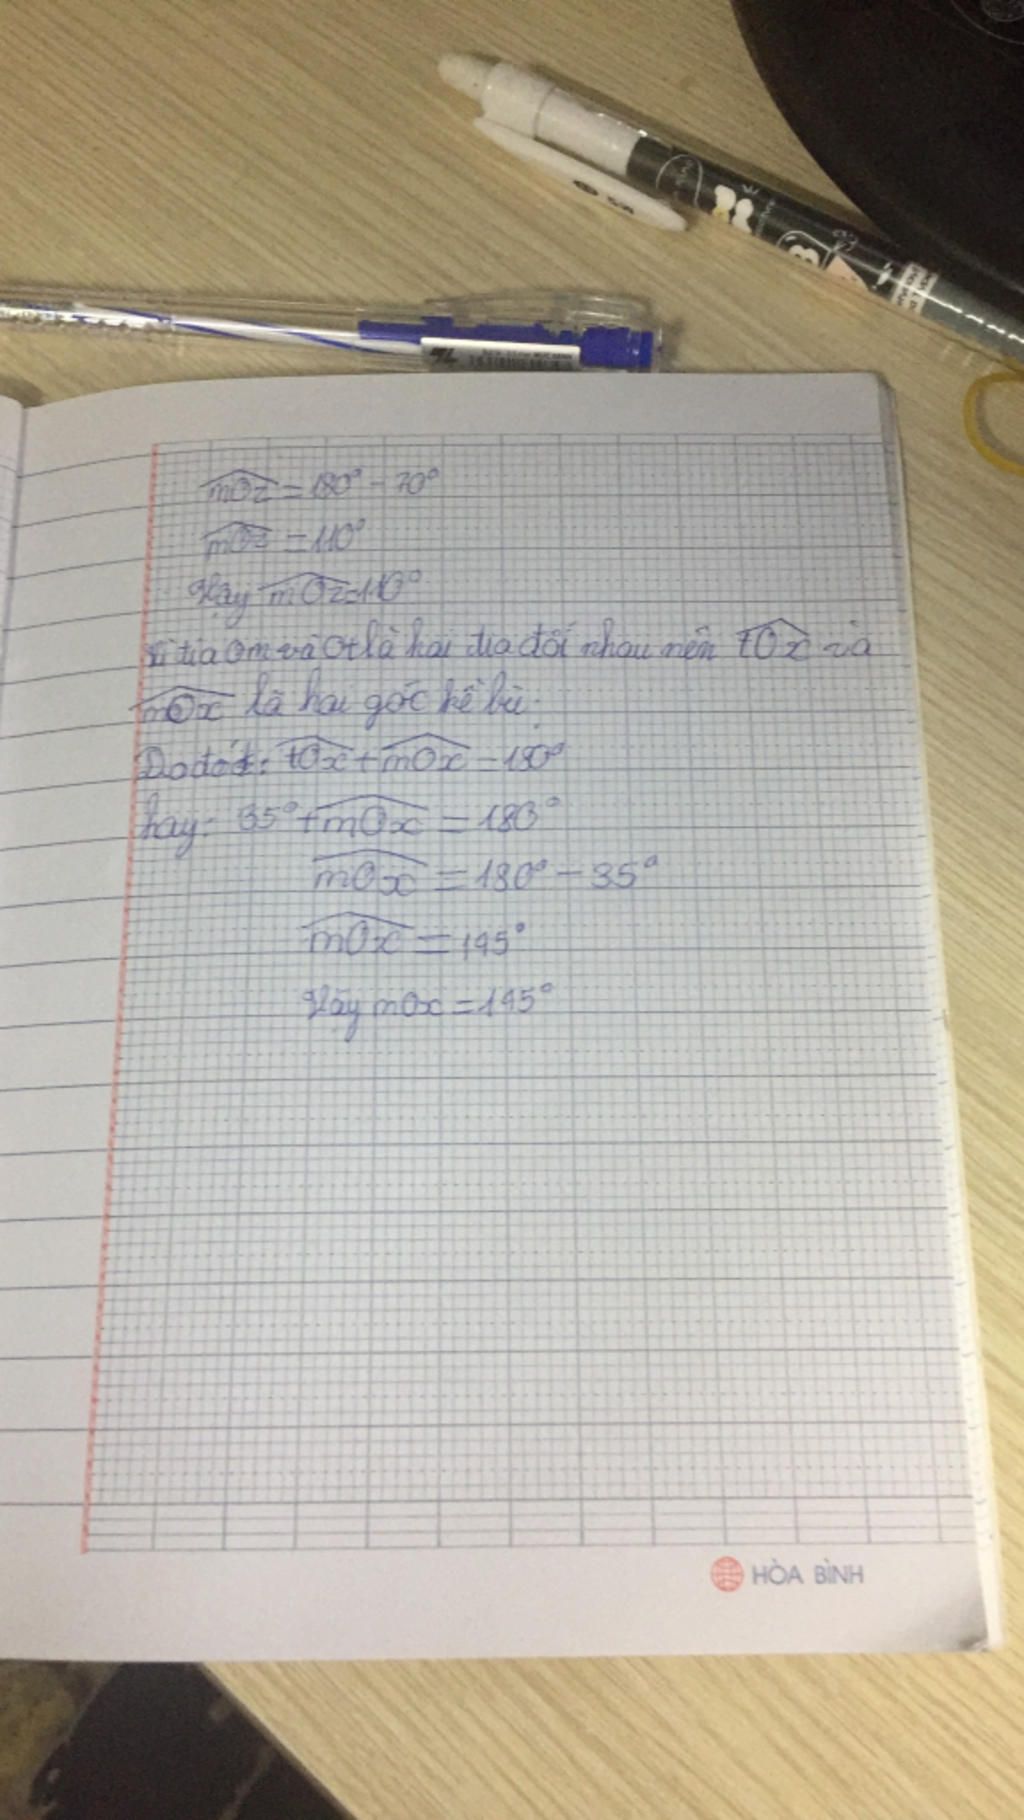 mOz = 180° - 70°
mOz = 110°
Vậy mOz = 110°
Vì tia Om và Ot là hai tia đối nhau nên tOx và
mOx là hai góc kề bù.
Do đó: tOx + mOx = 180°
hay: 35° + mOx = 180°
mOx = 180° - 35°
mOx = 145°
Vậy mOx = 145°
HÒA BÌNH